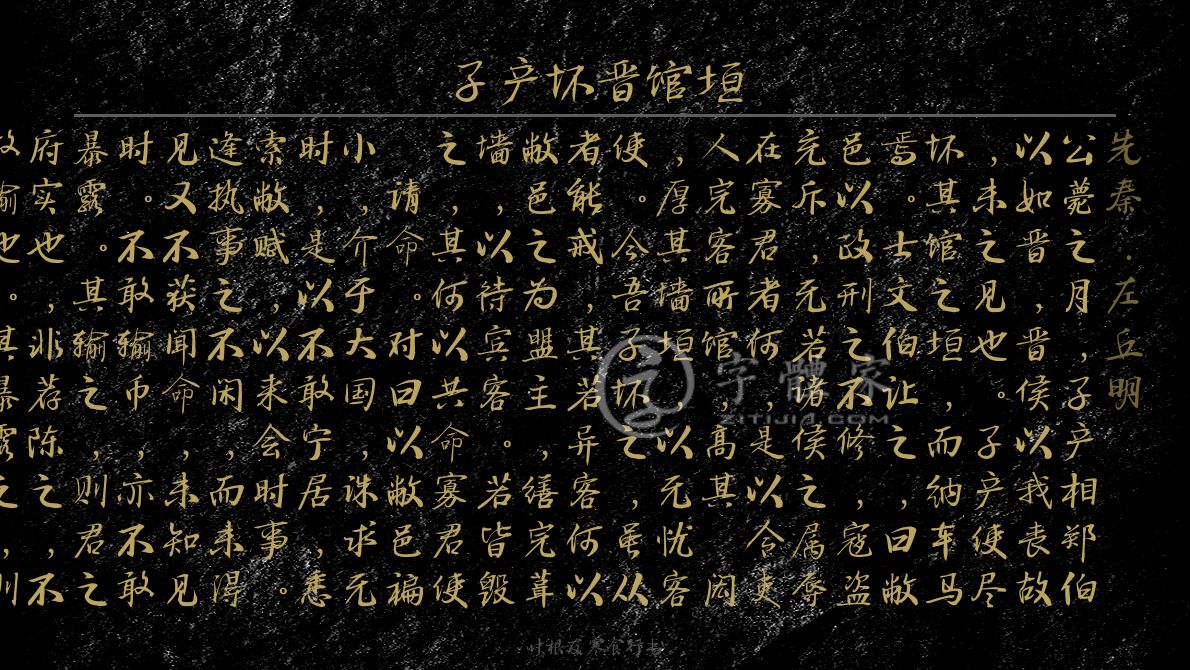 子产坏晋馆垣
先秦·左丘明
公薨之月，子产相郑伯
以如晋，晋侯以我丧故
，未之见也。子产使尽
坏其馆之垣，而纳车马
焉。士文伯让之，曰敝
邑以政刑之不修，寇盗
充斥，无若诸侯之属辱
在寡君者何，是以令吏
人完客所馆，高其闳
，厚其墙垣，以无忧客
使。今吾子坏之，虽从
者能戒，其若异客何以
敝邑之为盟主，缮完葺
墙，以待宾客。若皆毁
之，其何以共命寡君使
请命。对曰以敝邑褊
小，介于大国，诛求无
时，是以不敢宁居，悉
索敝赋，以来会时事。
逢执事之不闲，而未得
见又不获闻命，未知见
时。不敢输币，亦不敢
暴露。其输之，则君之
府实也，非荐陈之，不
故输也。其暴露之，则
字體家
ZITIJIA.COM
叶根友寒食行书